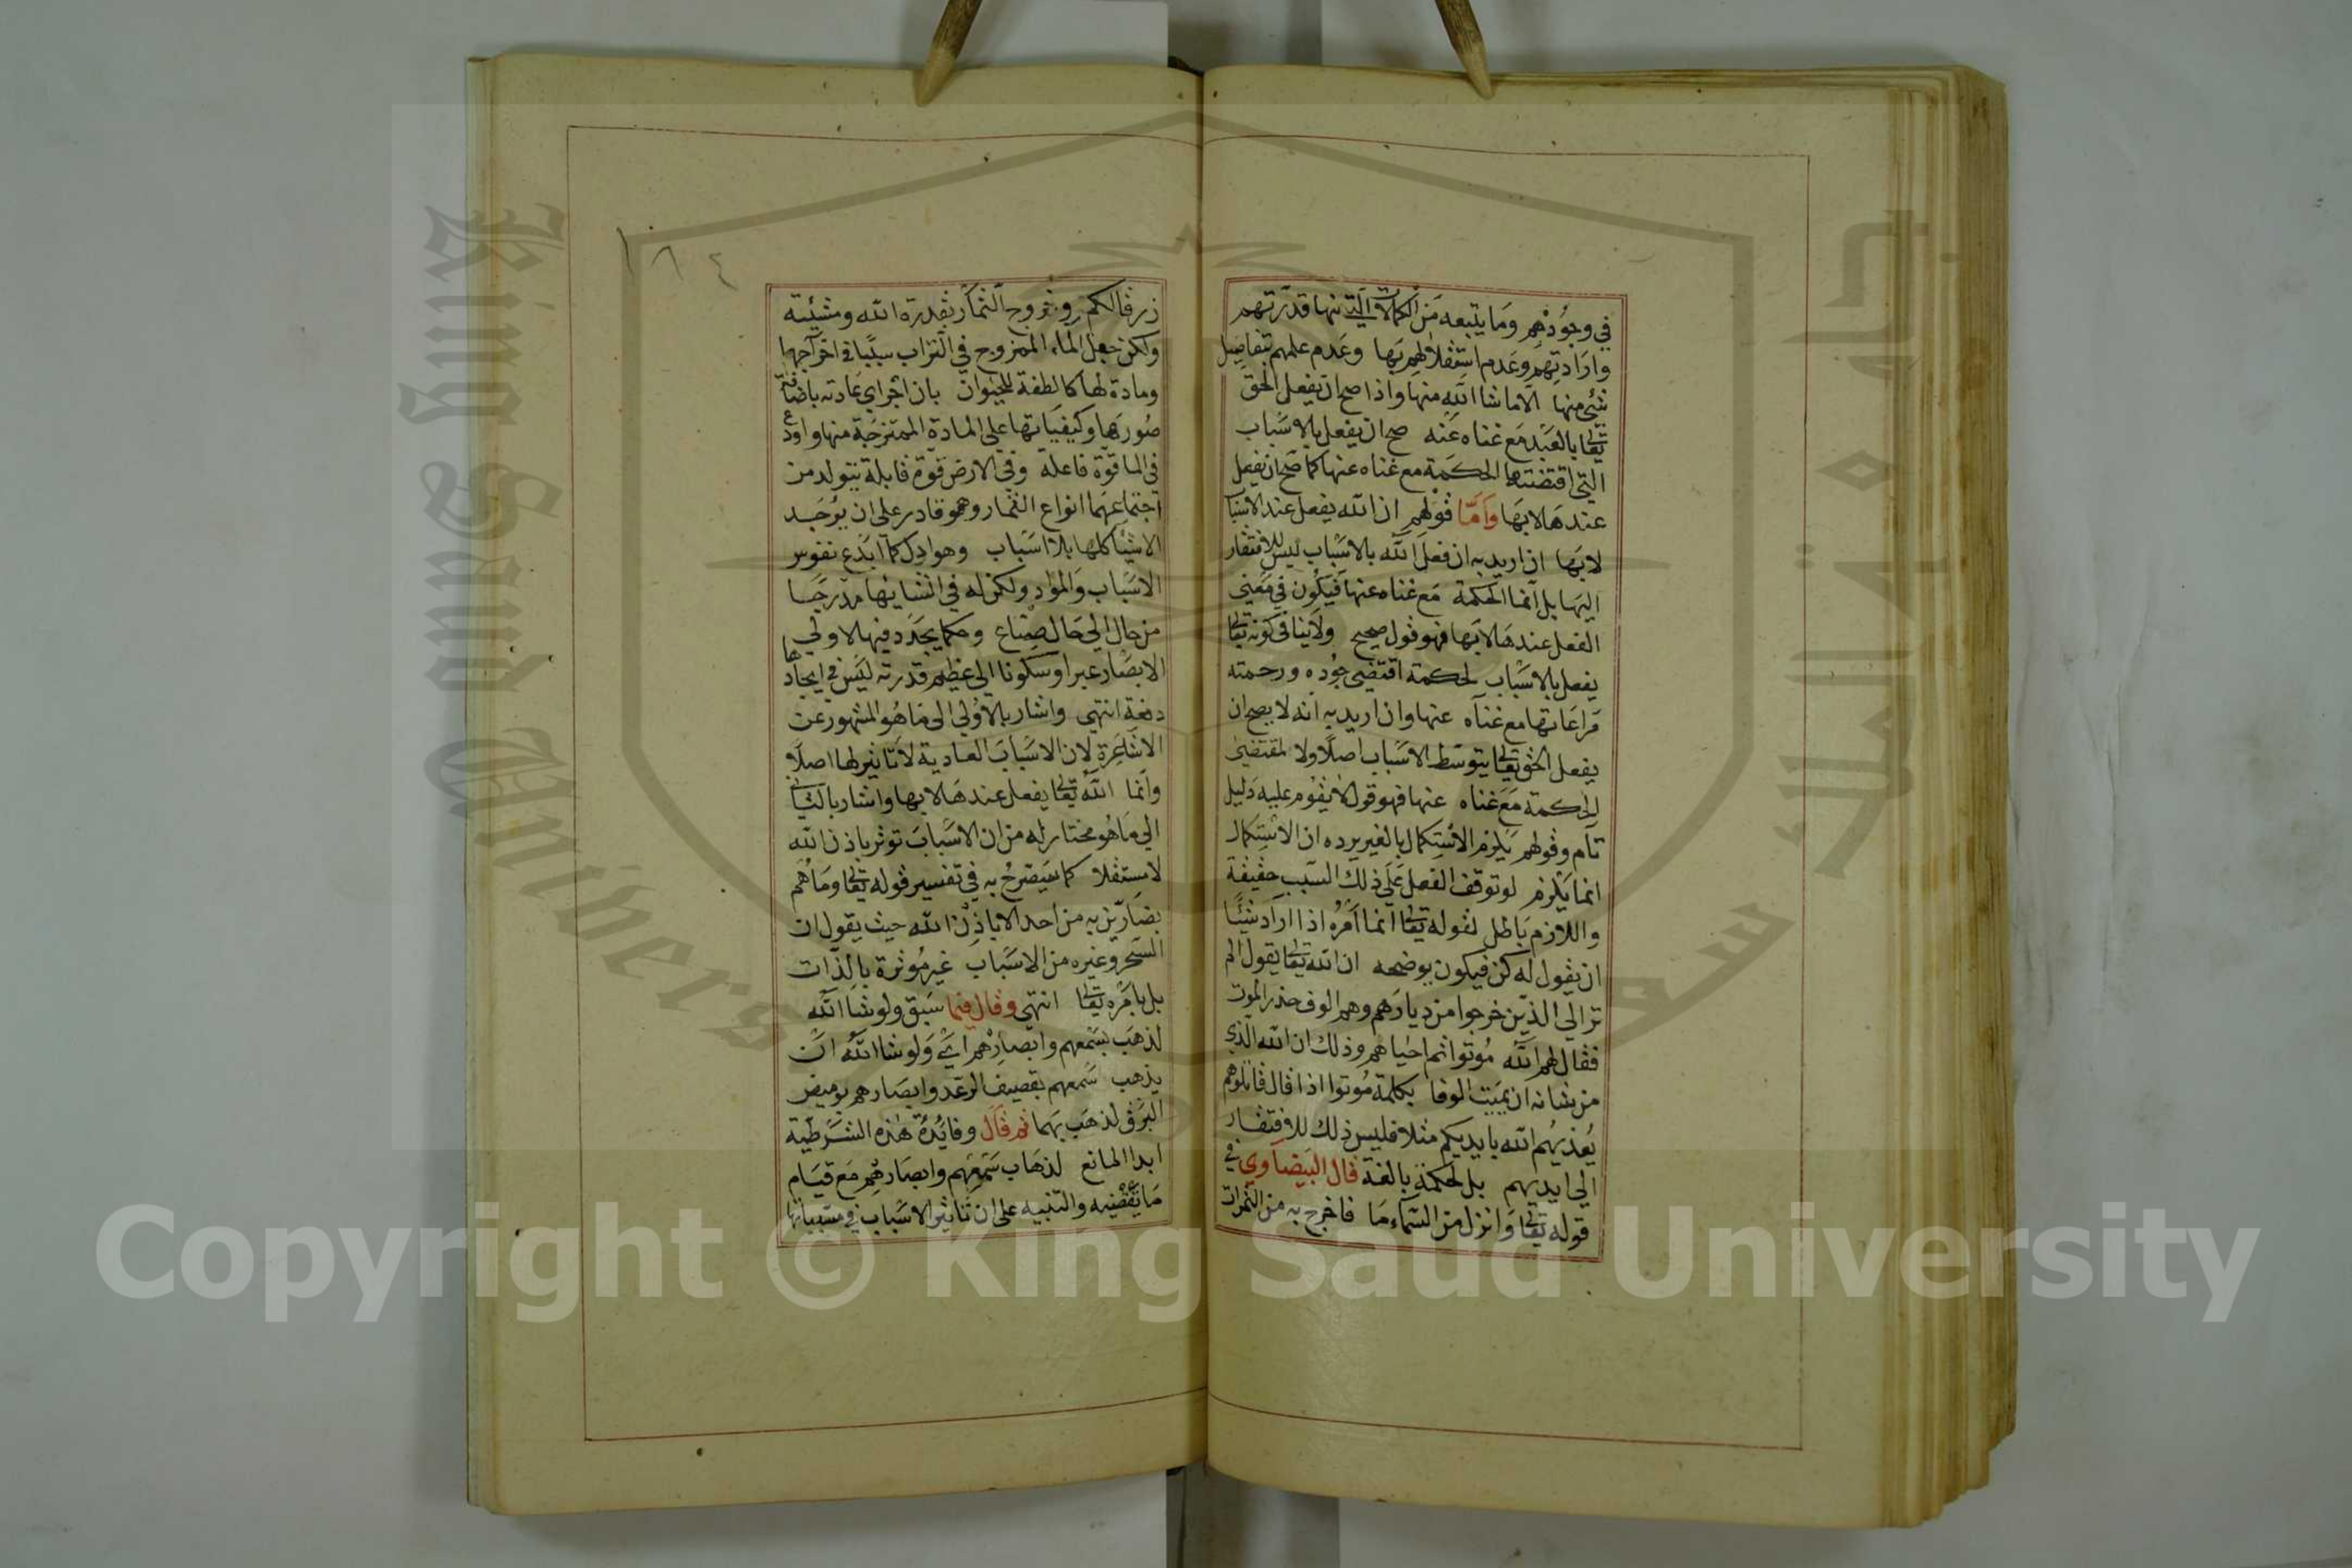 في وجودهم وما يتبعه من الكمالات التي منها قدرتهم
وارادتهم وعدم استقلالهم بها وعدم علمهم بتفاصيل
شئ منها الا ما شا الله منها واذا صح ان يفعل الحق
تعالى بالعبد مع غناه عنه صح ان يفعل بالاسباب
التي اقتضتها الحكمة مع غناه عنها كما صح ان يفعل
عندها لا بها واما قولهم ان الله يفعل عند الاسباب
لا بها ان اريد به ان فعل الله بالاسباب ليس للافتقار
اليها بل انما الحكمة مع غناه عنها فيكون في معنى
الفعل عندها لا بها فهو قول صحيح ولا ينافي كونه تعالى
يفعل بالاسباب لحكمة اقتضى جوده ورحمته
مراعاتها مع غناه عنها وان اريد به انه لا يصح ان
يفعل الحق تعالى بتوسط الاسباب اصلا ولا لمقتضى
الحكمة مع غناه عنها فهو قول لا يقوم عليه دليل
تام وقولهم يلزم الاستكمال بالغير يرده ان الاستكمال
انما يلزم لو توقف الفعل على ذلك السبب حقيقة
واللازم باطل لقوله تعالى انما امره اذا اراد شيئا
ان يقول له كن فيكون يوضحه ان الله تعالى يقول الم
تر الى الذين خرجوا من ديارهم وهم الوف حذر الموت
فقال لهم الله موتوا ثم احياهم وذلك ان الله الذي
من شانه ان يميت الوفا بكلمة موتوا اذا قال قاتلوهم
يعذبهم الله بايديكم مثلا فليس ذلك للافتقار
الى ايديهم بل لحكمة بالغة قال البيضاوي في
قوله تعالى وانزل من السماء ما فاخرج به من الثمرات
١٨٤
رزقا لكم وخروج الثمار بقدرة الله ومشيئته
ولكن جعل الماء الممزوج في التراب سببا في اخراجها
ومادة لها كالنطفة للحيوان بان اجرى عادته باضافة
صورها وكيفياتها على المادة الممتزجة منها واودع
في الما قوة فاعلة وفي الارض قوة قابلة يتولد من
اجتماعهما انواع الثمار وهو قادر على ان يوجد
الاشيا كلها بلا اسباب ومواد كما ابدع نفوس
الاسباب والمواد ولكن له في انشائها مدرجا
من حال الى حال صنائع وحكما يجدد فيها لاولي
الابصار عبرا وسكونا الى عظيم قدرته ليس في ايجادها
دفعة انتهى واشار بالاولى الى ما هو المشهور عن
الاشاعرة لان الاسباب العادية لا تاثير لها اصلا
وانما الله تعالى يفعل عندها لا بها واشار بالثاني
الى ما هو مختار له من ان الاسباب توثر باذن الله
لا مستقلا كما سيصرح به في تفسير قوله تعالى وما هم
بضارين به من احد الا باذن الله حيث يقول ان
السحر وغيره من الاسباب غير موثرة بالذات
بل بامره تعالى انتهى وقال فيما سبق ولو شا الله
لذهب بسمعهم وابصارهم اي ولو شا الله ان
يذهب سمعهم بقصيف الرعد وابصارهم بوميض
البرق لذهب بهما ثم قال وفائدة هذه الشرطية
ابدا المانع لذهاب سمعهم وابصارهم مع قيام
ما يقتضيه والتنبيه على ان تاثير الاسباب في مسبباتها
Copyright © King Saud University
King Saud University